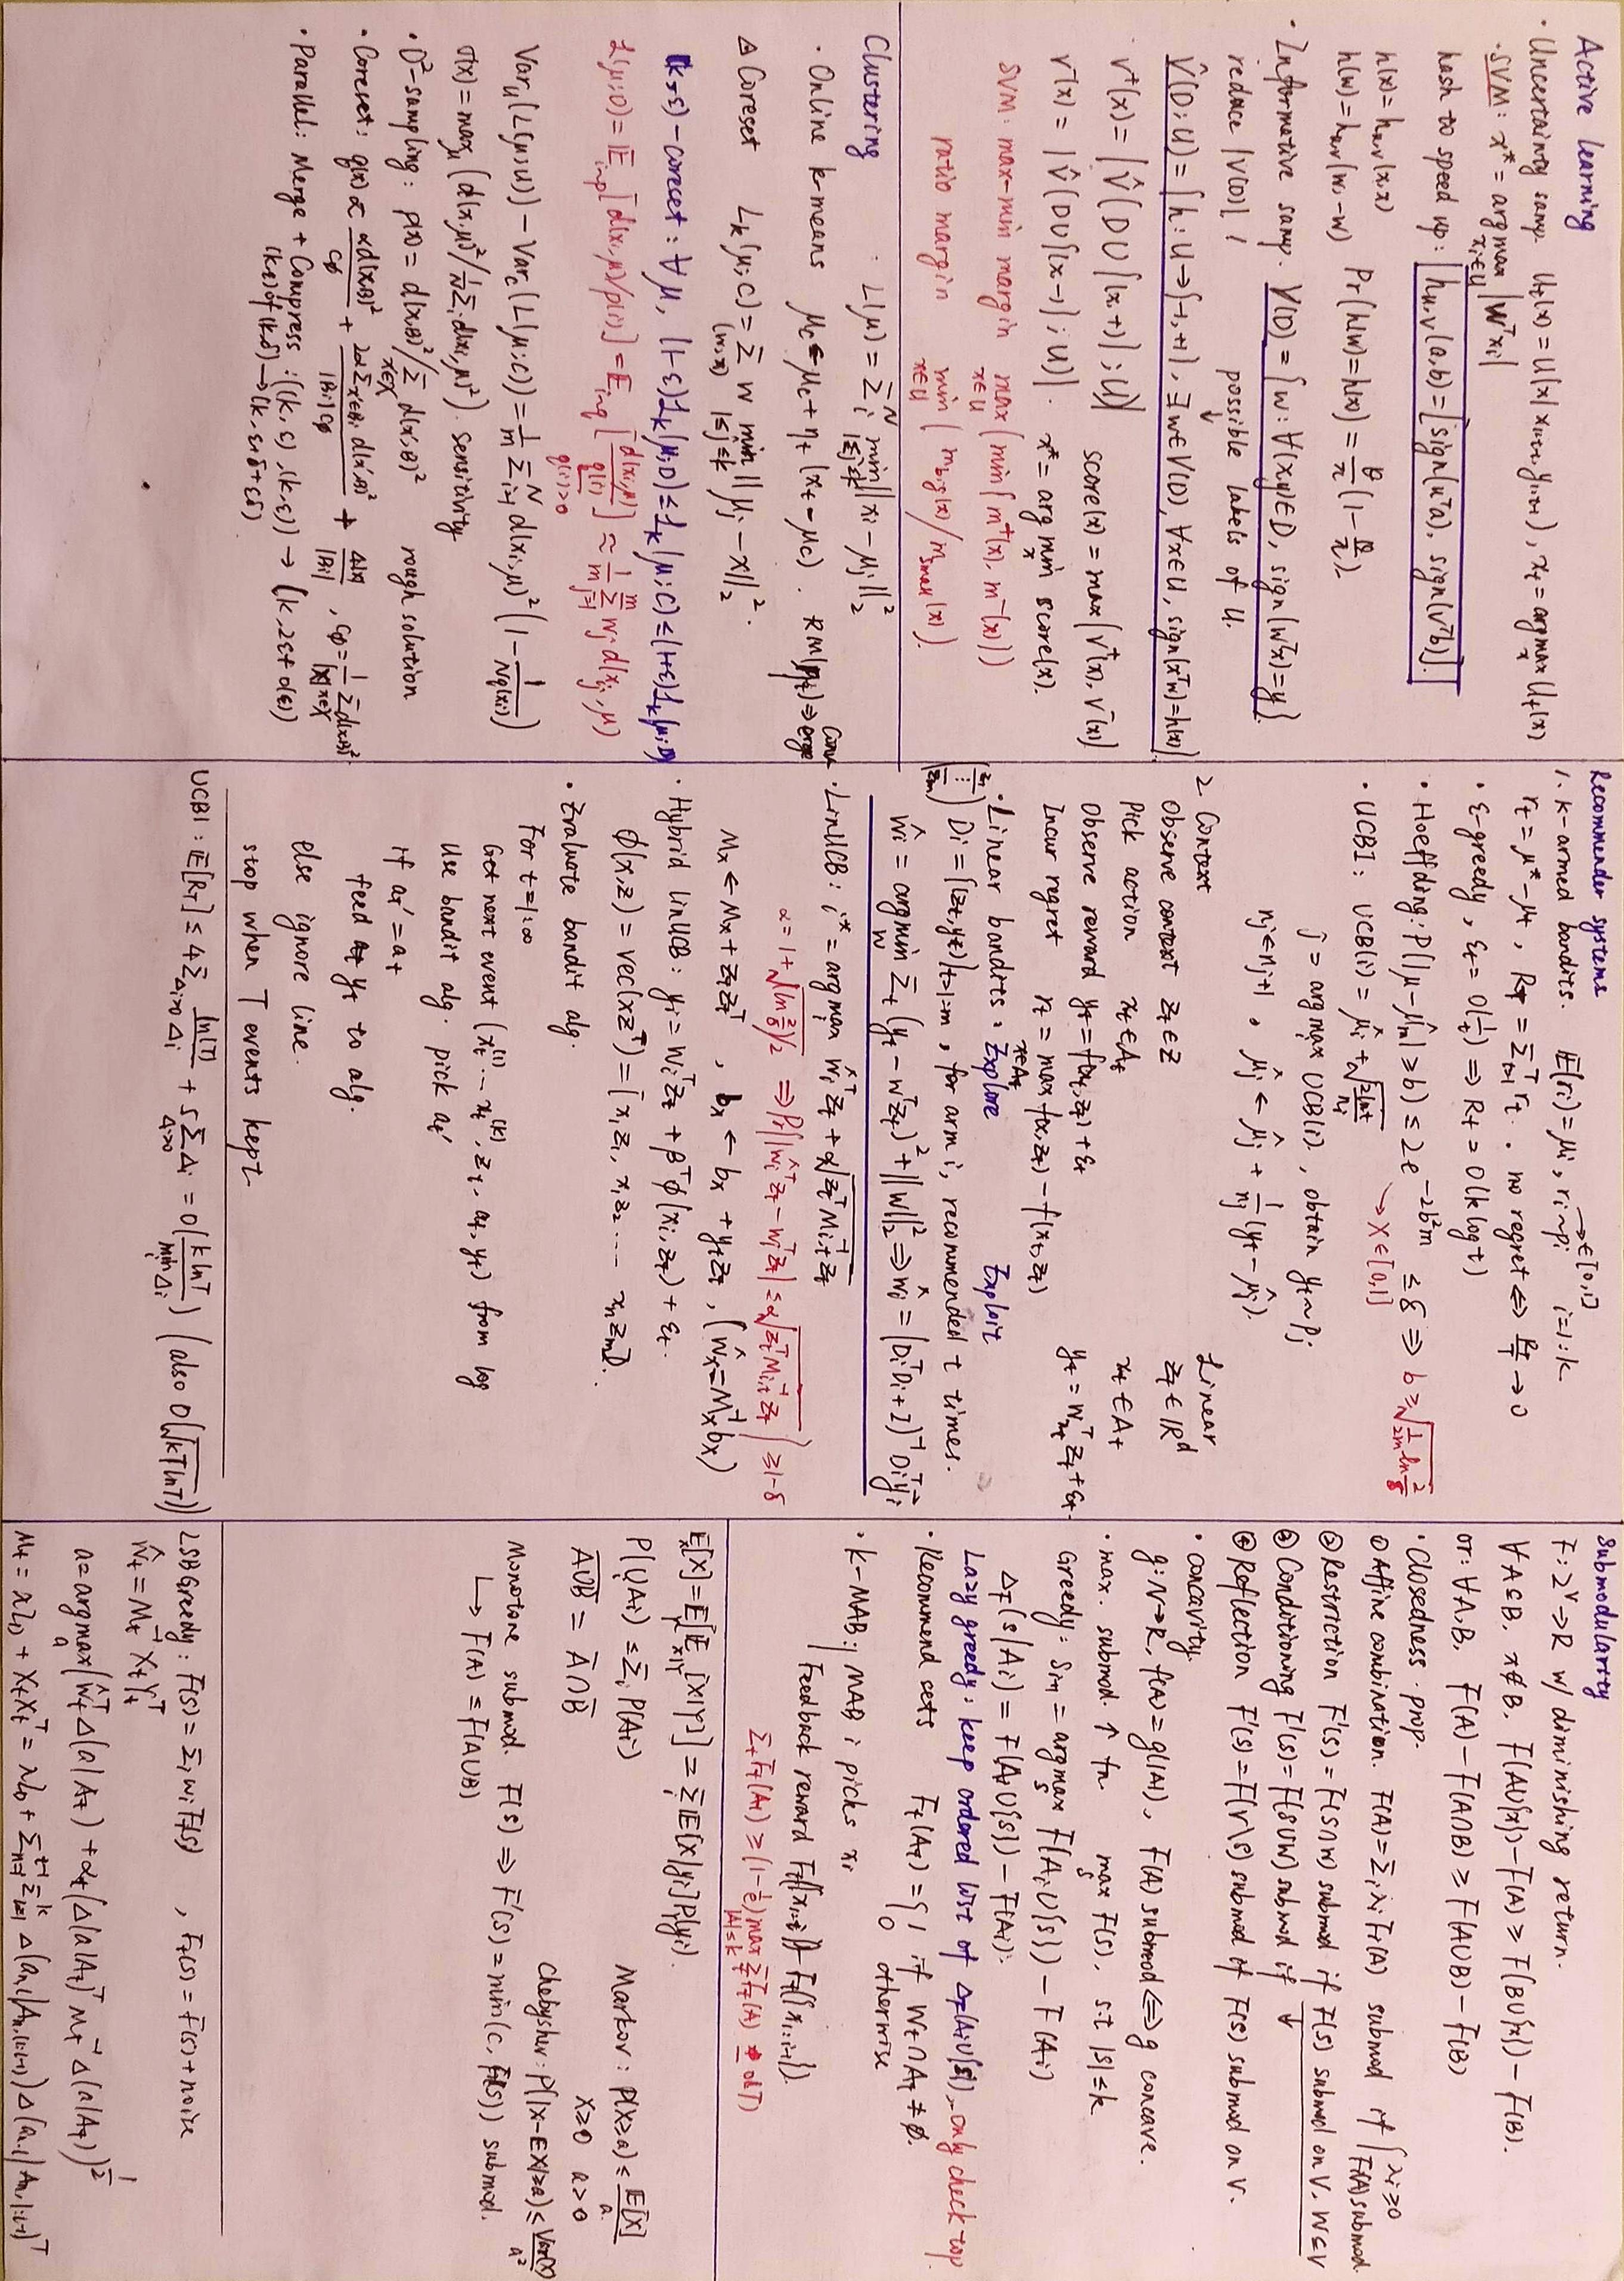 Active learning
· Uncertainty samp. Ut(x) = U(x|x1:t-1, y1:t-1), xt = argmax x Ut(x)
· SVM: x* = argmax xi∈U |wᵀxi|
hash to speed up: hu,v(a,b) = [sign(uᵀa), sign(vᵀb)].
h(x) = hu,v(x,x)
h(w) = hu,v(w,-w) Pr(h(w)=h(x)) = θ/π (1-θ/π).
· Informative samp. V(D) = {w: ∀(x,y)∈D, sign(wᵀx)=y}
reduce |V(D)| ! possible labels of U.
V̂(D;U) = {h: U→{-1,+1}, ∃w∈V(D), ∀x∈U, sign(xᵀw)=h(x)}
v⁺(x) = |V̂(D∪{(x,+)};U)| score(x) = max(v⁺(x), v⁻(x))
v⁻(x) = |V̂(D∪{(x,-)};U)|. x* = arg min x score(x).
SVM: max-min margin max x∈U (min{m⁺(x), m⁻(x)})
ratio margin min x∈U (mbig(x)/msmall(x)).
Clustering : L(μ) = Σi^N min 1≤j≤k ||xi-μj||₂²
· Online k-means μc ← μc + ηt (xt-μc). RM(ηt) ⇒ Converge
△ Coreset Lk(μ;C) = Σ(w,x) w min 1≤j≤k ||μj-x||₂².
(k,ε)-coreset: ∀μ, (1-ε)Lk(μ;D) ≤ Lk(μ;C) ≤ (1+ε)Lk(μ;D)
L(μ;D) = E i~p[d(xi,μ)/p(i)] = E i~q[d(xi,μ)/q(i)] ≈ 1/m Σ j=1^m wj d(xj,μ)
q(i)>0
Varu(L(μ;U)) - Varc(L(μ;C)) = 1/m Σ i=1^N d(xi,μ)² (1 - 1/Nq(xi))
σ(x) = maxμ (d(x,μ)²/ 1/N Σi d(xi,μ)²). sensitivity
· D²-sampling: p(x) = d(x,B)²/Σ x'∈X d(x',B)² rough solution
· Coreset: q(x) ∝ αd(x,B)²/cφ + 2αΣx'∈Bi d(x',B)²/|Bi|cφ + 4|X|/|Bi|, cφ = 1/|X| Σx∈X d(x,B)²
· Parallel: Merge + Compress: ((k,ε),(k,ε)) → (k, 2ε+o(ε))
(k,ε) of (k,δ) → (k, ε+δ+εδ)
Recommender systems
1. k-armed bandits. E[ri]=μi, ri~pi →∈[0,1] i=1:k
rt = μ*-μt, RT = Σt=1^T rt. no regret ⇔ RT/T → 0
· ε-greedy, εt = O(1/t) ⇒ Rt = O(k log t)
· Hoeffding: P(|μ-μ̂m| ≥ b) ≤ 2e^-2b²m ≤ δ ⇒ b ≥ √(1/2m ln 2/δ)
→ X∈[0,1]
· UCB1: UCB(i) = μ̂i + √(2lnt/ni)
j = arg max i UCB(i), obtain yt ~ pj
nj ← nj+1, μ̂j ← μ̂j + 1/nj (yt - μ̂j).
2. Context Linear
observe context zt∈Z zt∈Rᵈ
Pick action xt∈At xt∈At
Observe reward yt = f(xt,zt)+εt yt = wxtᵀ zt + εt.
Incur regret rt = max x∈At f(x,zt) - f(xt,zt)
· Linear bandits: Explore Exploit
(z1 ⋮ zm) Di = {(zt,yt)}t=1:m, for arm i, recommended t times.
ŵi = argmin w Σt (yt - wᵀzt)² + ||w||₂² ⇒ ŵi = (DiᵀDi+I)⁻¹ Diᵀyi
· LinUCB: i* = argmax i ŵiᵀzt + α√(ztᵀMi,t⁻¹zt
α = 1+√(ln 2/δ)/2 ⇒ Pr{|ŵiᵀzt - wiᵀzt| ≤ α√(ztᵀMi,t⁻¹zt} ≥ 1-δ
Mx ← Mx + ztztᵀ, bx ← bx + ytzt, (ŵx = Mx⁻¹bx)
· Hybrid linUCB: yi = wiᵀzt + βᵀφ(xi,zt) + εt.
φ(x,z) = vec(xzᵀ) = [x1z1, x1z2 ... xnzm].
· Evaluate bandit alg.
For t=1:∞
Get next event (xt⁽¹⁾ ... xt⁽ᵏ⁾, zt, at, yt) from log
Use bandit alg. pick at'
If at' = at
feed yt to alg.
else ignore line.
stop when T events kept.
UCB1: E[RT] ≤ 4Σ Δi>0 ln(T)/Δi + 5Σ Δi>0 Δi = O(k lnT / min i Δi) (also O(√(kTlnT)))
Submodularity
F: 2ⱽ→R w/ diminishing return.
∀A⊆B, x∉B, F(A∪{x})-F(A) ≥ F(B∪{x})-F(B).
or: ∀A,B, F(A)-F(A∩B) ≥ F(A∪B)-F(B)
· Closedness prop.
① Affine combination. F(A) = Σi λi Fi(A) submod if {λi≥0 Fi(A) submod.
② Restriction F'(S) = F(S∩W) submod if F(S) submod on V, W⊆V
③ Conditioning F'(S) = F(S∪W) submod if ↓
④ Reflection F'(S) = F(V\S) submod if F(S) submod on V.
· concavity.
g: N→R, F(A)=g(|A|), F(A) submod ⇔ g concave.
· max. submod. ↑ fn max S F(S), s.t |S|≤k
Greedy: Si+1 = argmax S F(Ai∪{S}) - F(Ai)
ΔF(S|Ai) = F(Ai∪{S}) - F(Ai).
Lazy greedy: keep ordered list of ΔF(Ai∪{S}), only check top.
· Recommend sets Ft(At) = {1 if Wt∩At≠∅. 0 otherwise
· k-MAB: MAB i picks xi
Feedback reward Ft({x1:i}) - Ft({x1:i-1}).
ΣtFt(At) ≥ (1-1/e) max |A|≤k ΣFt(A) - o(T)
Ex[X] = EY[E x|Y[X|Y]] = Σi E[X|yi]P(yi).
P(∪Ai) ≤ Σi P(Ai) Markov: P(X≥a) ≤ E[X]/a
X≥0 a>0
A∪B = A∩B Chebyshev: P(|X-EX|≥a) ≤ Var(X)/a²
Monotone submod. F(S) ⇒ F'(S) = min(c, F(S)) submod.
↳ F(A) ≤ F(A∪B)
LSBGreedy: F(S) = Σi wiFi(S), Ft(S) = F(S) + noise
ŵt = Mt⁻¹XtYtᵀ
a = argmax a (ŵtᵀΔ(a|At) + αt(Δ(a|At)ᵀMt⁻¹Δ(a|At))^½
Mt = λI + XtXtᵀ = M0 + Σn=1^t-1 Σi=1^k Δ(an|An,(1:i-1))Δ(an|An,1:i-1)ᵀ